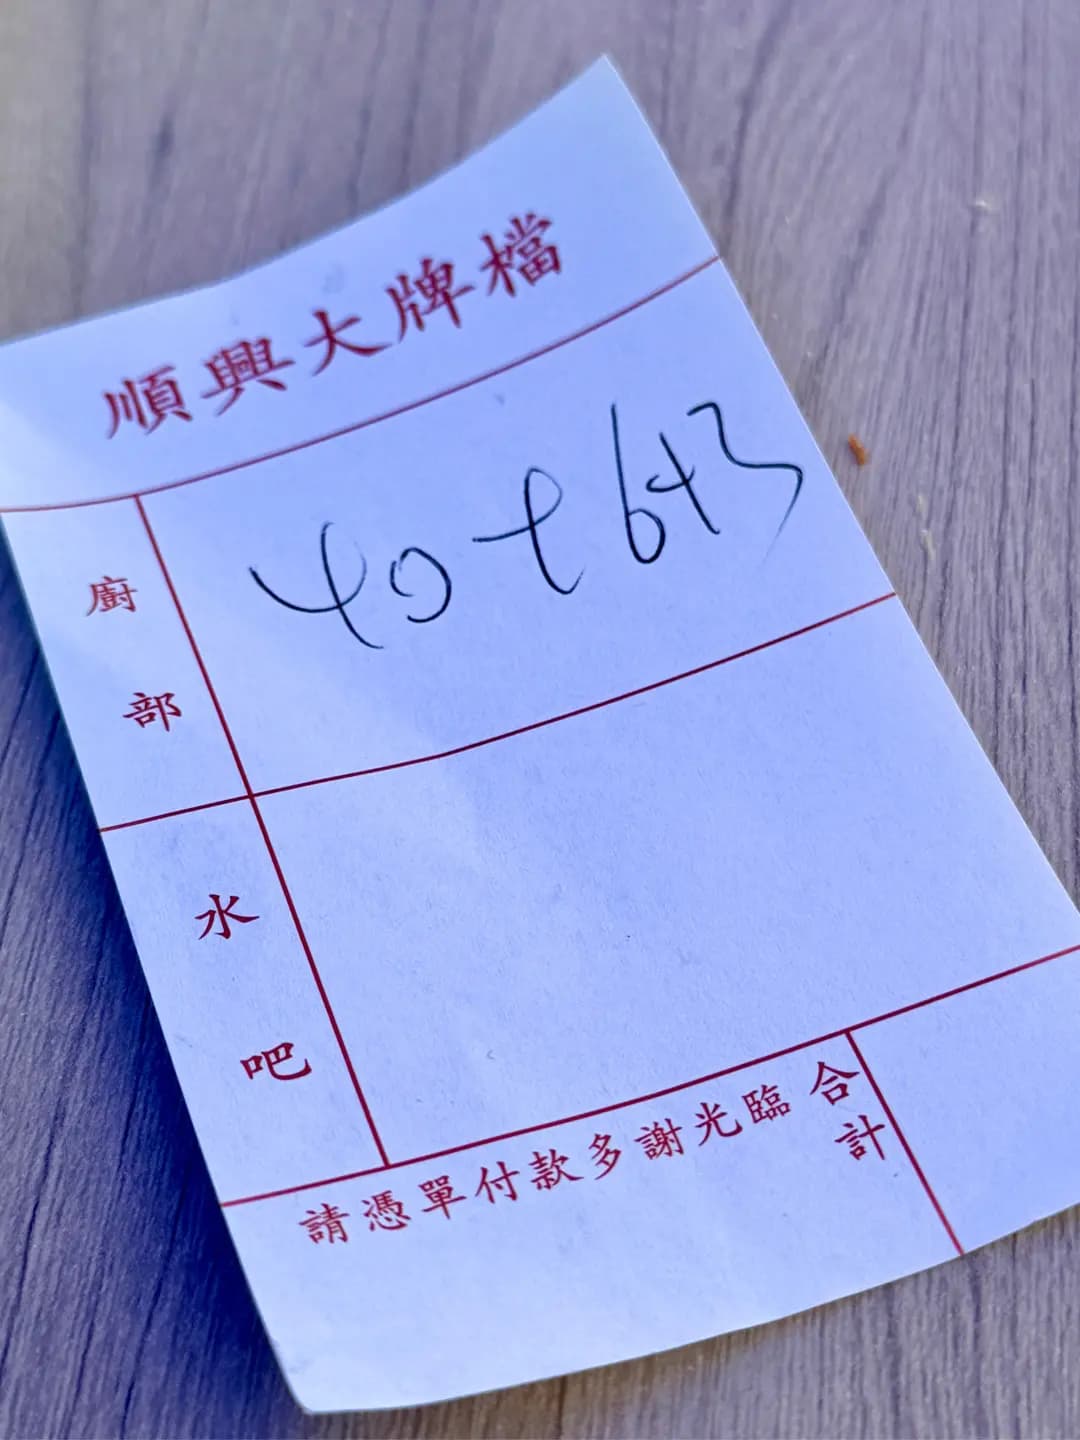 順興大牌檔
廚部
水吧
請憑單付款多謝光臨
合計